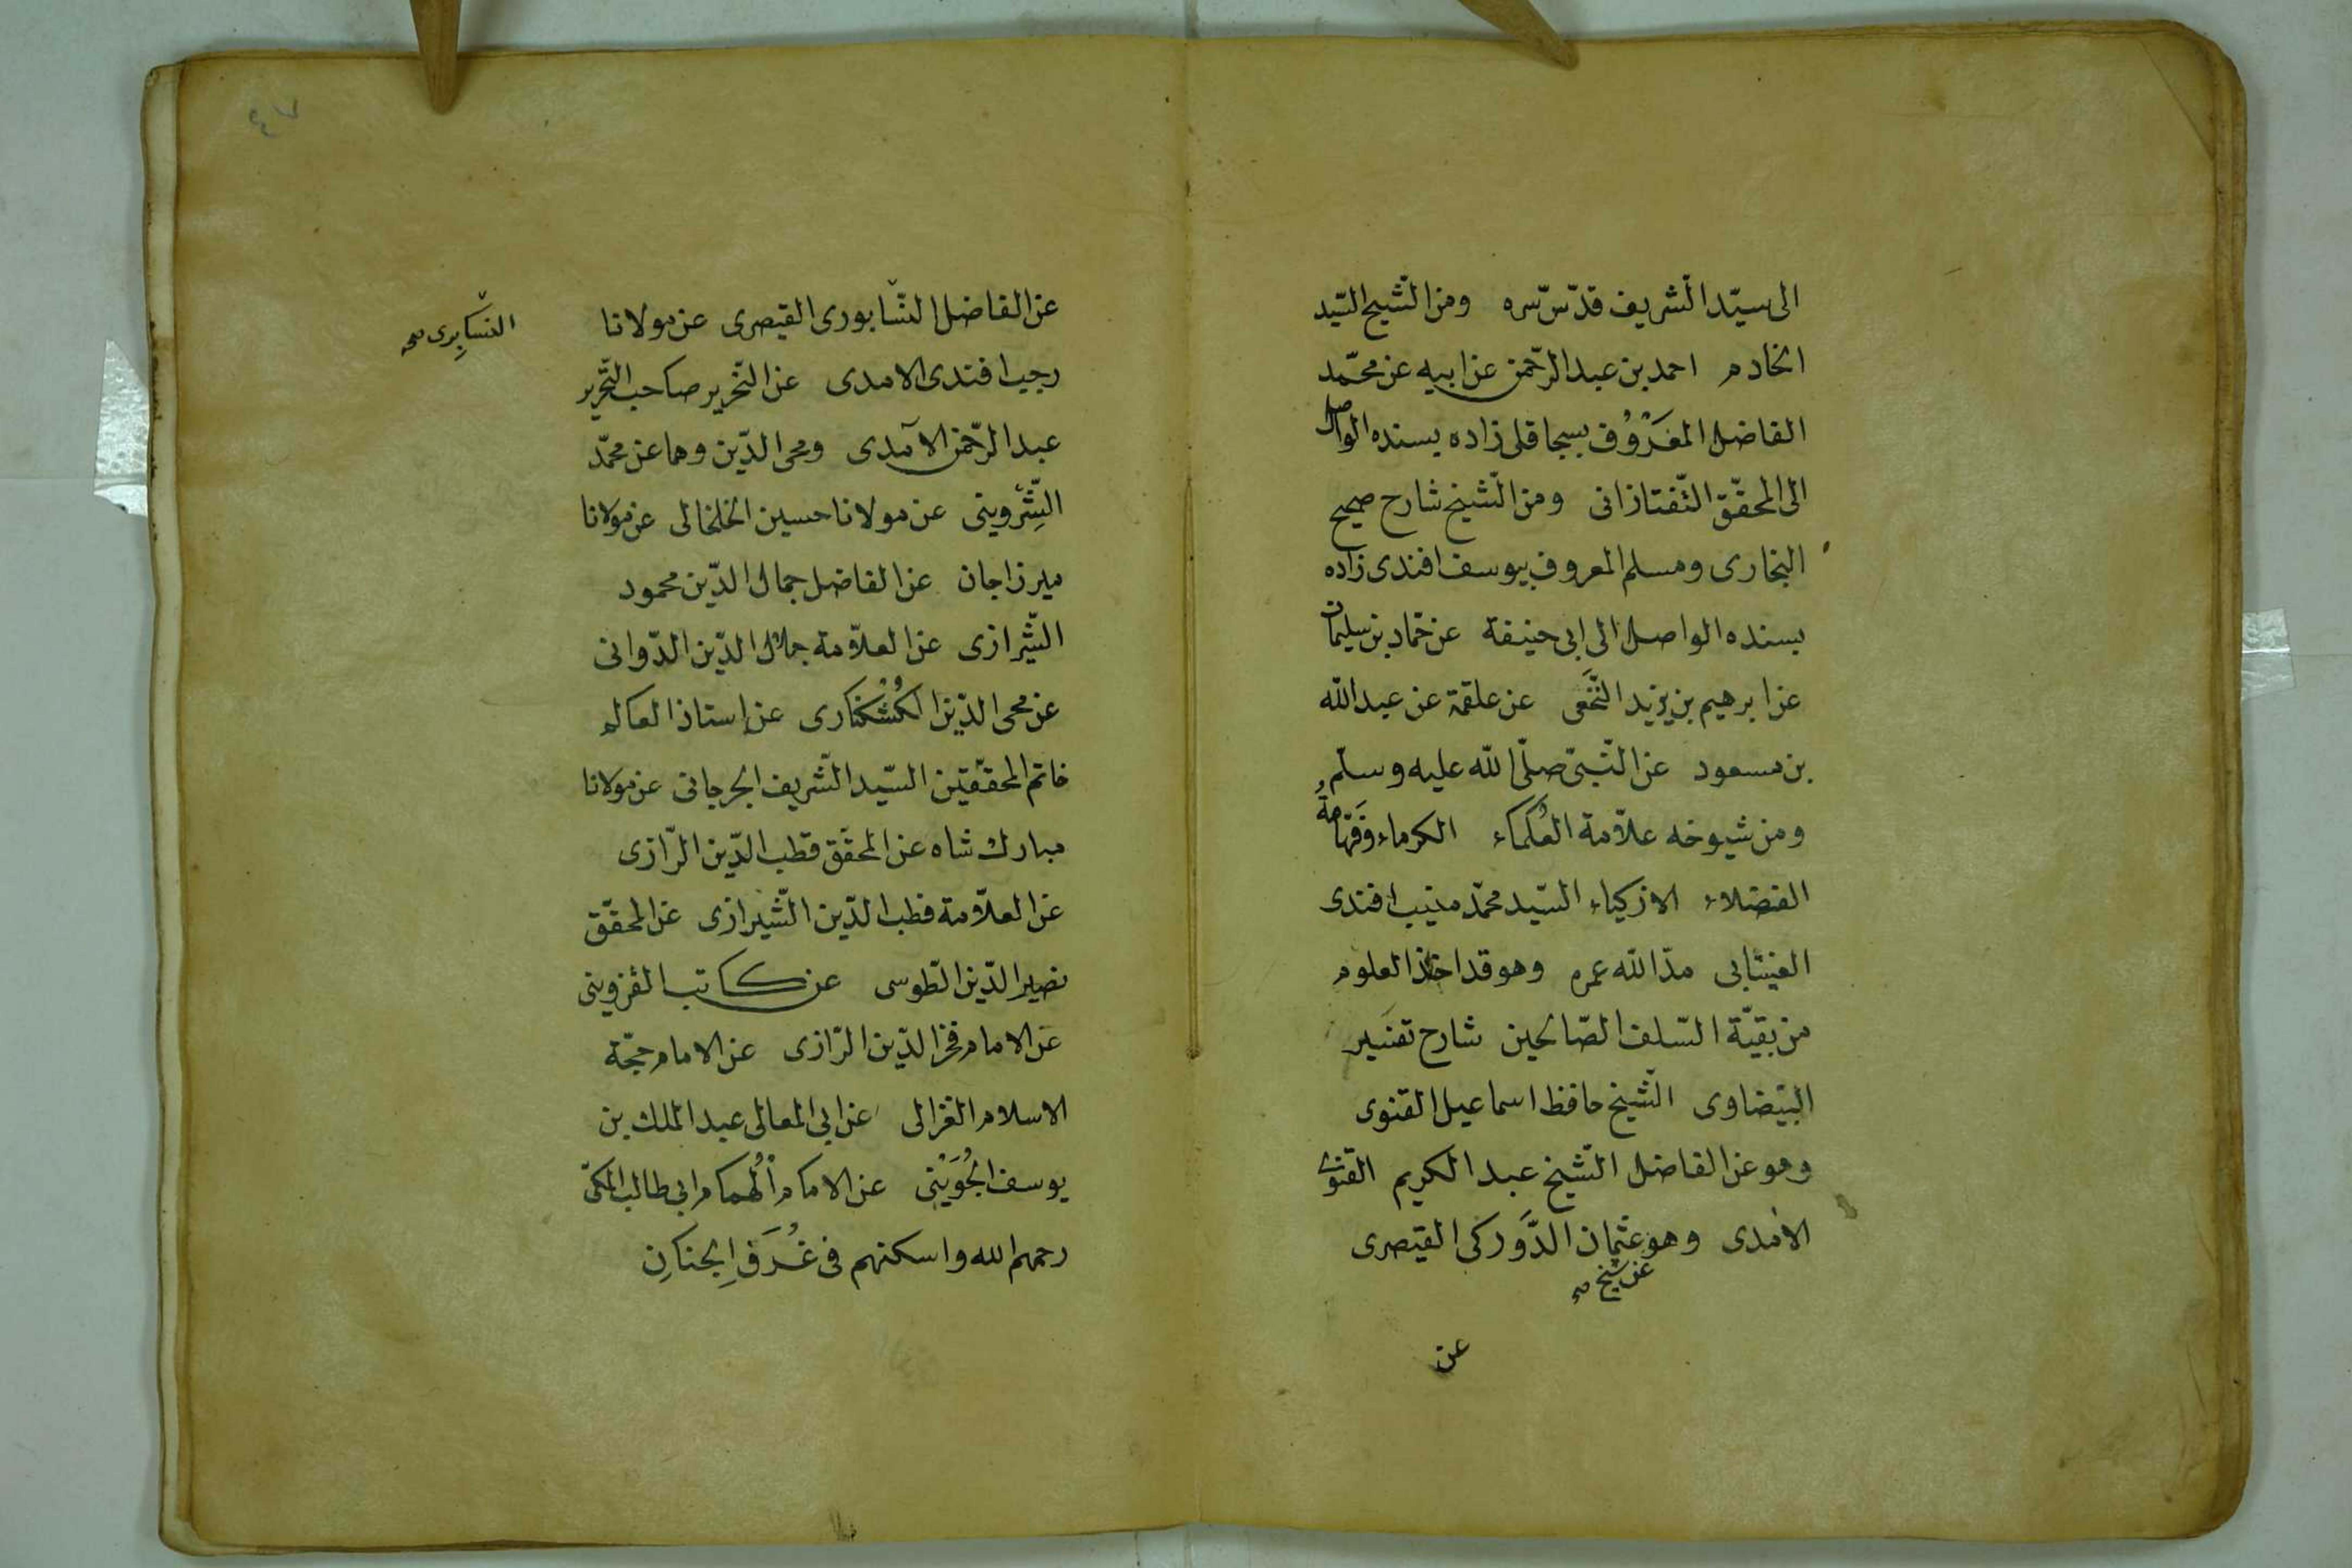 الى سيّد الشريف قدّس سره ومن الشيخ السّيد
الخادم احمد بن عبد الرّحمن عن ابيه عن محمّد
الفاضل المَعْرُوُف بسجاقلى زاده بسنده الواصل
الى المحقّق التّفتازانى ومن الشيخ شارح صحيح
البخارى ومسلم المعروف بيوسف افندى زاده
بسنده الواصل الى ابى حنيفة عن حمّاد بن سليمان
عن ابرهيم بن يزيد النَّخَعى عن علقمة عن عبد الله
بن مسعود عن النّبىّ صلّى الله عليه وسلّم
ومن شيوخه علّامة العُلماء الكرماء وفهّامة
الفضلاء الازكياء السّيد محمّد منيب افندى
العينتابى مدّ الله عمره وهو قد اخذ العلوم
من بقيّة السّلف الصّالحين شارح تفسير
البيضاوى الشّيخ حافظ اسماعيل القنوى
وهو عن الفاضل الشّيخ عبد الكريم القنوى
الامدى وهو عثمان الدَّوركى القيصرى
عن شيخ صح
عن
٤٧
عن الفاضل النشّابورى القيصرى عن مولانا
النشابرى صح
رجب افندى الامدى عن النّحرير صاحب التّحرير
عبد الرّحمن الآمدى ومحى الدّين وهما عن محمّد
الشِّرْوينى عن مولانا حسين الخلخالى عن مولانا
ميرزاجان عن الفاضل جمال الدّين محمود
الشّيرازى عن العلّامة جلال الدّين الدّوانى
عن محى الدّين الكُشْكنارى عن استاذ العالم
خاتم المحقّقين السّيد الشّريف الجرجانى عن مولانا
مبارك شاه عن المحقّق قطب الدّين الرّازى
عن العلّامة قطب الدّين الشّيرازى عن المحقّق
نصير الدّين الطّوسى عن كاتب القزوينى
عن الامام فخر الدّين الرّازى عن الامام حجّة
الاسلام الغزالى عن ابى المعالى عبد الملك بن
يوسف الجُوَيْنى عن الامام الْهُمام ابى طالب المكىّ
رحمهم الله واسكنهم فى غُرَفِ الجنانِ